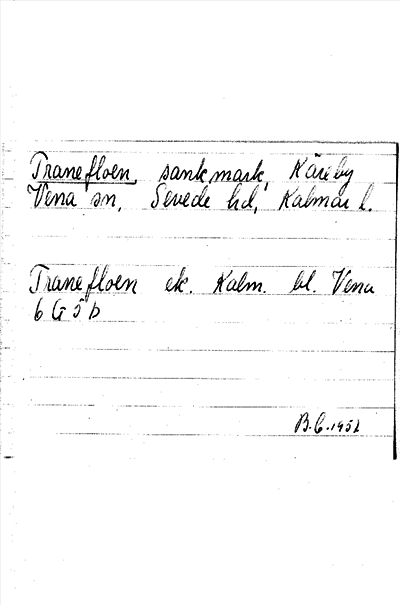 Tranefloen, sank mark, Käreby
Vena sn, Sevede hd, Kalmar l.
Tranefloen ek. Kalm. bl. Vena
6 G 5 b
B.C. 1952